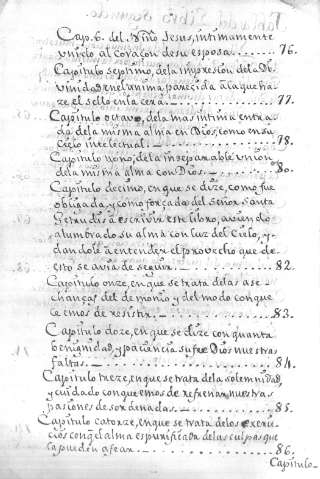 Cap. 6. del Niño Jesus, intimamente
vnido al coraçon de su esposa. 76.
Capitulo septimo, dela impresion dela Di-
vinidad en el anima, parecida àla que ha-
ze el sello en la cera. 77.
Capitulo octavo, dela mas intima entra-
da dela misma alma en Dios, como en su
Cielo intelectual. 78.
Capitulo nono, dela inseparable vnion
dela misma alma con Dios. 80.
Capitulo decimo, en que se dize, como fue
obligada, y como forçada del Señor Santa
Getrudis à escrivir este libro, aviendo
alumbrado su alma con luz del Cielo, y
dandole à entender el provecho que de
esto se avia de seguir. 82.
Capitulo onze, en que se trata delas ase-
chanças del demonio y del modo conque
le emos de resistir. 83.
Capitulo doze, en que se dize con quanta
benignidad, y paciencia sufre Dios nuestras
faltas. 84.
Capitulo treze, en que se trata dela solemnidad,
y cuidado conque emos de refrenar nuestras
pasiones desordenadas. 85.
Capitulo catorze, en que se trata delos exerci-
cios conq̃ el alma es purificada delas culpas que
la pueden afear. 86.
Capitulo